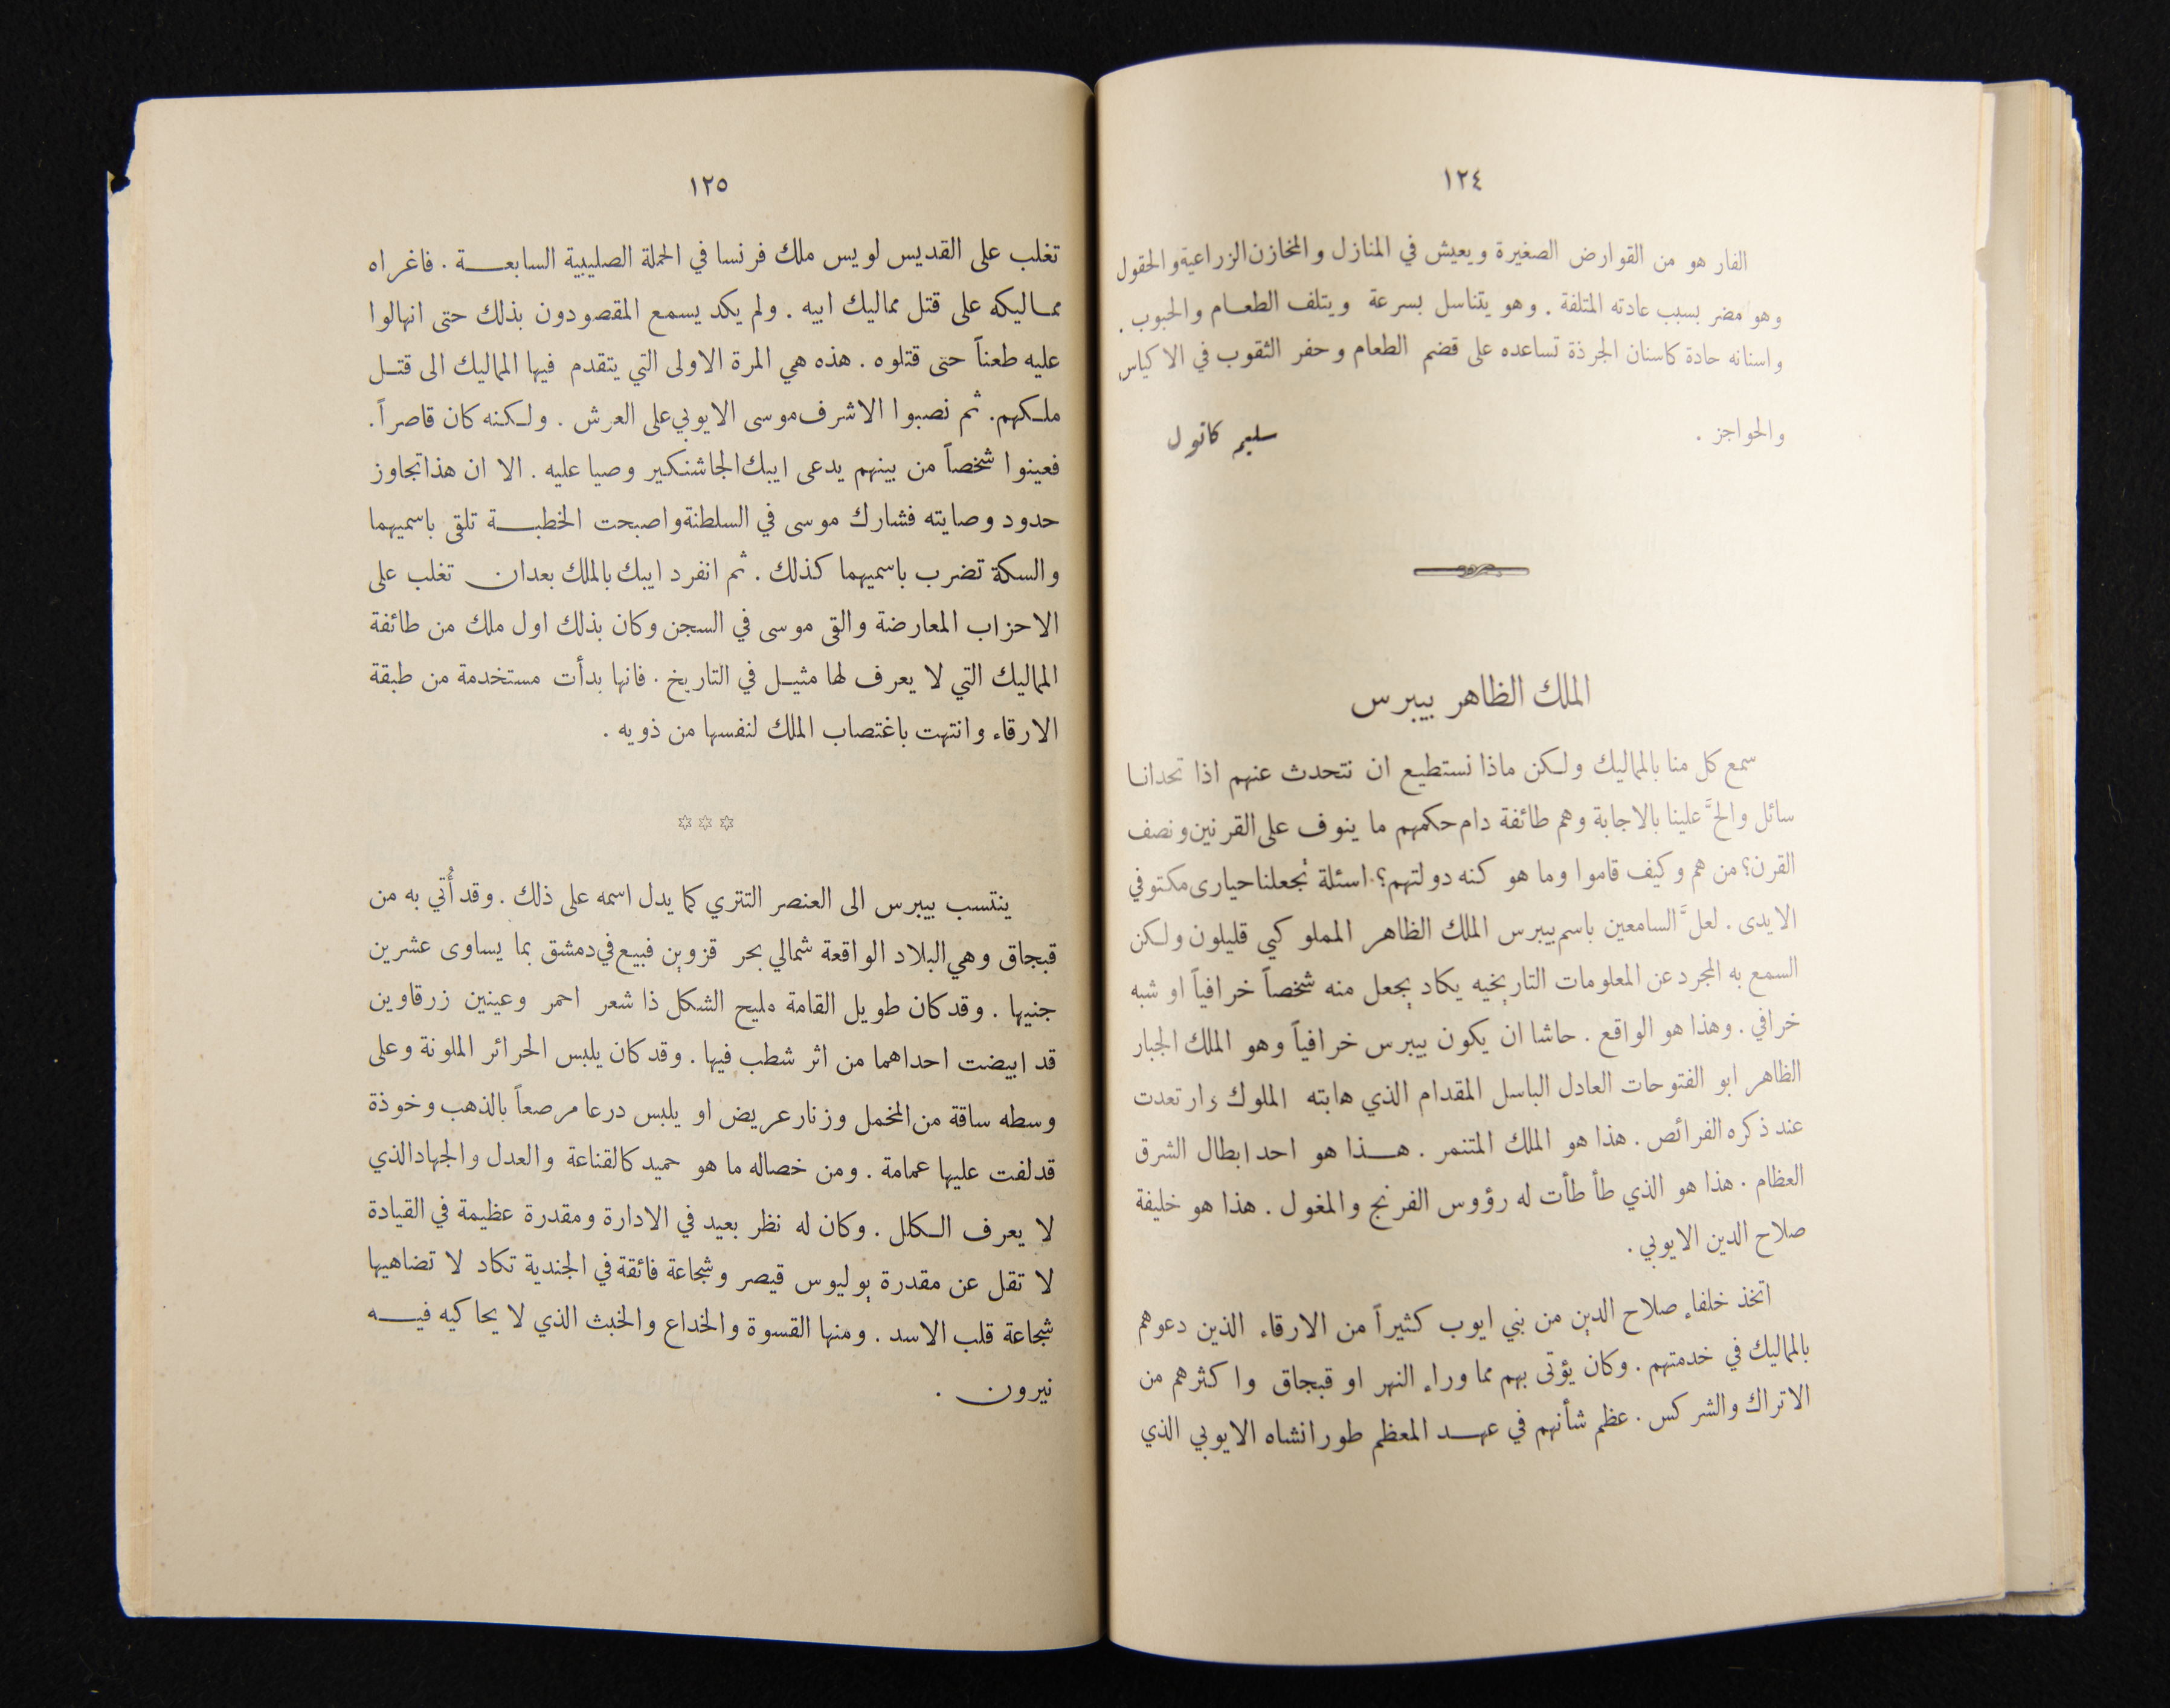 ١٢٤
الفار هو من القوارض الصغيرة ويعيش في المنازل والمخازن الزراعية والحقول
وهو مضر بسبب عادته المتلفة . وهو يتناسل بسرعة ويتلف الطعام والحبوب .
واسنانه حادة كاسنان الجرذة تساعده على قضم الطعام وحفر الثقوب في الاكياس
والحواجز .
سليم كاتول
الملك الظاهر بيبرس
سمع كل منا بالمماليك ولكن ماذا نستطيع ان نتحدث عنهم اذا تحدانا
سائل والحَّ علينا بالاجابة وهم طائفة دام حكمهم ما ينوف على القرنين ونصف
القرن؟ من هم وكيف قاموا وما هو كنه دولتهم؟ اسئلة تجعلنا حيارى مكتوفي
الايدى . لعلَّ السامعين باسم بيبرس الملك الظاهر المملوكي قليلون ولكن
السمع به المجرد عن المعلومات التاريخيه يكاد يجعل منه شخصاً خرافياً او شبه
خرافي . وهذا هو الواقع . حاشا ان يكون بيبرس خرافياً وهو الملك الجبار
الظاهر ابو الفتوحات العادل الباسل المقدام الذي هابته الملوك وارتعدت
عند ذكره الفرائص . هذا هو الملك المتنمر . هـذا هو احد ابطال الشرق
العظام . هذا هو الذي طأطأت له رؤوس الفرنج والمغول . هذا هو خليفة
صلاح الدين الايوبي .
اتخذ خلفاء صلاح الدين من بني ايوب كثيراً من الارقاء الذين دعوهم
بالمماليك في خدمتهم . وكان يؤتى بهم مما وراء النهر او قبجاق واكثرهم من
الاتراك والشركس . عظم شأنهم في عهـد المعظم طورانشاه الايوبي الذي
١٢٥
تغلب على القديس لويس ملك فرنسا في الحملة الصليبية السابعـة . فاغراه
ممـاليكه على قتل مماليك ابيه . ولم يكد يسمع المقصودون بذلك حتى انهالوا
عليه طعناً حتى قتلوه . هذه هي المرة الاولى التي يتقدم فيها المماليك الى قتـل
ملـكهم. ثم نصبوا الاشرف موسى الايوبي على العرش . ولـكنه كان قاصراً.
فعينوا شخصاً من بينهم يدعى ايبك الجاشنكير وصيا عليه . الا ان هذا تجاوز
حدود وصايته فشارك موسى في السلطنة واصبحت الخطبـة تلقى باسميهما
والسكة تضرب باسميهما كذلك . ثم انفرد ايبك بالملك بعد ان تغلب على
الاحزاب المعارضة والقى موسى في السجن وكان بذلك اول ملك من طائفة
المماليك التي لا يعرف لها مثيـل في التاريخ . فانها بدأت مستخدمة من طبقة
الارقاء وانتهت باغتصاب الملك لنفسها من ذويه .
✡ ✡ ✡
ينتسب بيبرس الى العنصر التتري كما يدل اسمه على ذلك . وقد أُتي به من
قبجاق وهي البلاد الواقعة شمالي بحر قزوين فبيع في دمشق بما يساوى عشرين
جنيها . وقد كان طويل القامة مليح الشكل ذا شعر احمر وعينين زرقاوين
قد ابيضت احداهما من اثر شطب فيها . وقد كان يلبس الحرائر الملونة وعلى
وسطه ساقة من المخمل وزنار عريض او يلبس درعا مرصعاً بالذهب وخوذة
قد لفت عليها عمامة . ومن خصاله ما هو حميد كالقناعة والعدل والجهاد الذي
لا يعرف الـكلل . وكان له نظر بعيد في الادارة ومقدرة عظيمة في القيادة
لا تقل عن مقدرة يوليوس قيصر وشجاعة فائقة في الجندية تكاد لا تضاهيها
شجاعة قلب الاسد . ومنها القسوة والخداع والخبث الذي لا يحاكيه فيـه
نيرون .